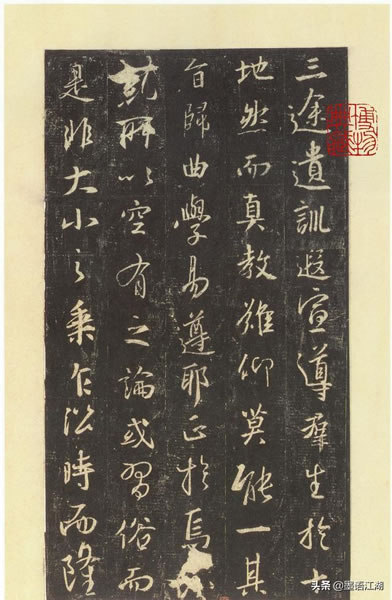 三途遺訓遐宣導羣生於十
地然而真教難仰莫能一其
旨歸曲學易遵耶正於焉
糺所以空有之論或習俗而
是非大小之乘乍沿時而隆
头条 @墨语江湖